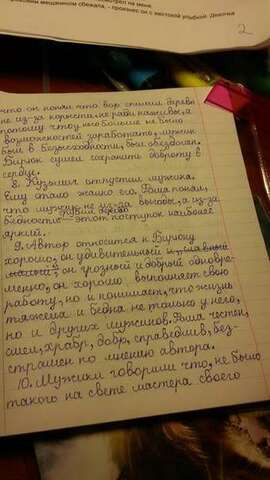 смотрел на меня,
мешником сбежала, - произнес он с жестокой улыбкой. Девочка
2
что он понял что вор спилил дерево
не из-за корысти, не ради наживы, а
потому что у него больше не было
возможностей заработать, мужик
был в безысходности, был обездолен.
Бирюк сумел сохранить доброту в
сердце.
8. Кузьмич отпустил мужика.
Ему стало жалко его. Фома понял,
что мужик не из-за выгоды, а из-за
бедности этот поступок наиболее
яркий.
9. Автор относится к Бирюку
хорошо, он удивительный и
он грозный и добрый одновре-
менно, он хорошо выполняет свою
работу, но и понимает, что жизнь
тяжела и бедна не только у него,
но и других мужиков. Фома честен,
смел, храбр, добр, справедлив, бес-
страшен по мнению автора.
10. Мужики говорили что, не было
такого на свете мастера своего